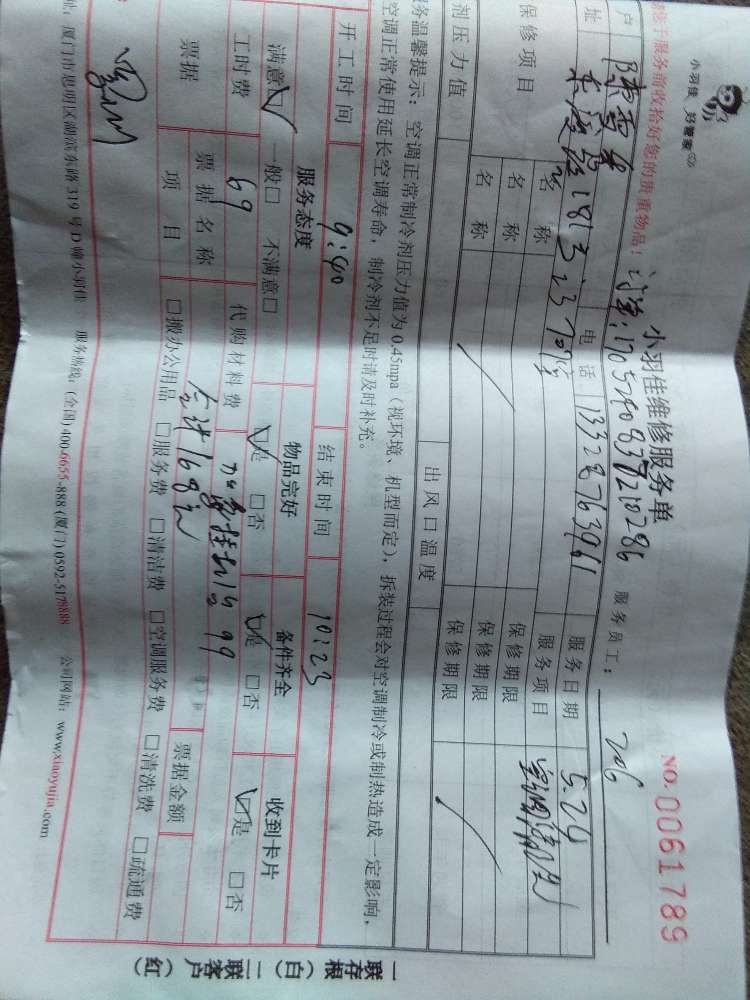 小羽佳 好管家
小羽佳维修服务单
NO.0061789
服务前收拾好您的贵重物品!
服务员工: 206
户
电话 13328763961
服务日期 5.24
址
服务项目
保修项目
名称
保修期限
名称
保修期限
名称
保修期限
剂压力值
出风口温度
务温馨提示:空调正常制冷剂压力值为0.45mpa(视环境、机型而定),拆装过程会对空调制冷或制热造成一定影响,
空调正常使用延长空调寿命,制冷剂不足时请及时补充。
开工时间 9:40 结束时间 10:23
服务态度 物品完好 备件齐全 收到卡片
满意☑ 一般□ 不满意□ ☑是 □否 ☑是 □否 ☑是 □否
工时费 69 代购材料费 99
合计168元
票据 票据名称 票据金额
项目 □搬办公用品 □服务费 □清洁费 □空调服务费 □清洗费 □疏通费
址:厦门市思明区湖滨东路319号D幢小羽佳 服务热线:(全国)400-6655-888 (厦门)0592-5178888 公司网站:www.xiaoyujia.com
一联存根(白)二联客户(红)